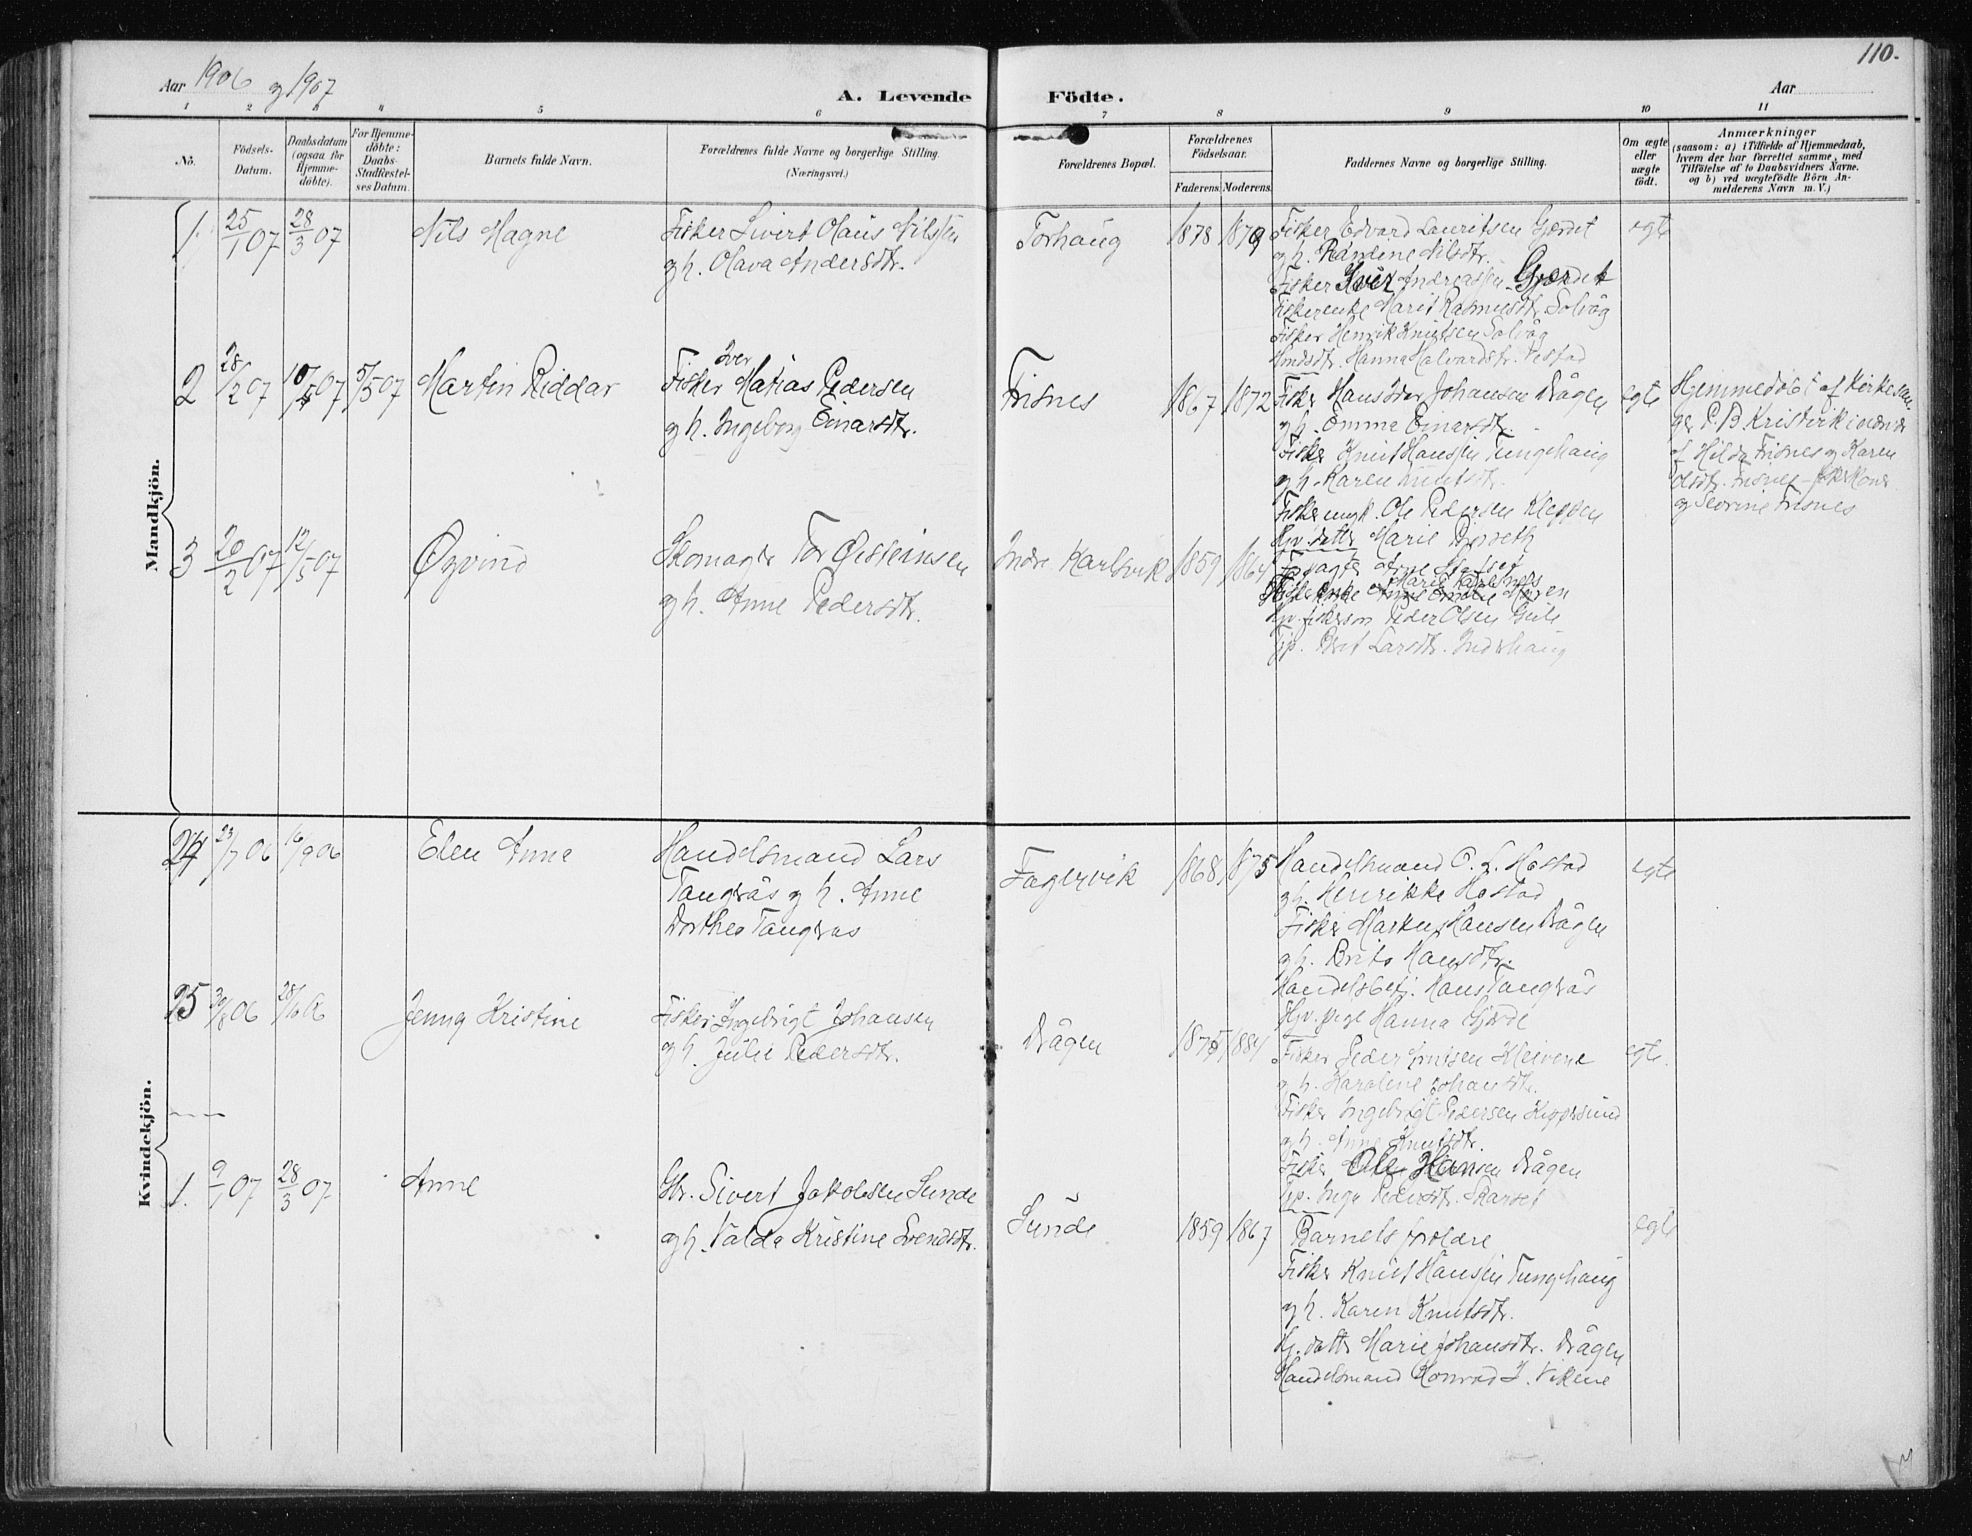 110.
Aar 1906 og 1907
A. Levende Födte.
Aar
1 2 3 4 5 6 7 8 9 10 11
No.
Födsels-Datum.
Daabsdatum (ogsaa for Hjemme-döbte).
For Hjemme-döbte: Daabs-Stadfæstel-ses Datum.
Barnets fulde Navn.
Forældrenes fulde Navne og borgerlige Stilling.
(Næringsvei.)
Forældrenes Bopæl.
Forældrenes Födselsaar.
Faderens. Moderens.
Faddernes Navne og borgerlige Stilling.
Om ægte eller uægte födt.
Anmærkninger
(saasom: a) i Tilfælde af Hjemmedaab,
hvem der har forrettet samme, med
Tilföielse af to Daabsvidners Navne.
og b) ved uægtefödte Börn An-
melderens Navn m. V.)
Mandkjön.
1. 25/1 07 28/3 07 Nils Magne
Fisker Sivert Olaus Nilsen
gh. Olava Andersdtr.
Torhaug 1878 1879
Fisker Edvard Lauritsen Gjerdet
gh. Randine Nilsdtr.
Fisker Iver Andreassen Gjerdet
Fiskerenke Marit Rasmusdtr. Solvåg
Fisker Henrik Knutsen Solvåg
Hanna Halvardsdtr. Vestad
egte
2 28/2 07 10/5 07 5/5 07 Martin Riddar
Fisker Iver Matias Pedersen
gh. Ingeborg Einarsdtr.
Frisnes 1867 1872
Fisker Hans Iver Johansen Drågen
gh. Emma Einarsdtr.
Fisker Knut Hansen Tungehaug
gh. Karen Knutsdtr.
Fisker ungk. Ole Pedersen Kleppen
Hjv. datter Marie
egte
Hjemmedöbt af Kirkesan-
ger P. B. Kristvik i nærvær
af Hilda Frisnes og Karen
Olsdtr. Frisnes
og Severine Frisnes
3 20/2 07 12/5 07 Øyvind
Skomager Tor Øisteinsen
gh. Anne Pedersdtr.
Indre Karlsvik 1859 1864
Arne
Marie Karlsnes
Fisker enke
Hjv. fiskerson Peder Olsen Gule
Gjp. Brit Larsdtr. Inderhaug
Kvindekjön.
24 23/7 06 16/9 06 Elen Anna
Handelsmand Lars
Tangvås gh. Anne
Dorthea Tangvås
Fagervik 1868 1875
Handelsmand P. L. Hostad
gh. Henrikke Hostad
Fisker Markus Hansen Drågen
gh. Brita Hansdtr.
Handelsbetj. Hans Tangvås
Hjv. pige Hanna Gjerde
egte
25 30/8 06 06 Jenny Kristine
Fisker Ingebrigt Johansen
gh. Julie Pedersdtr.
Drågen 1875 1884
Fisker Peder Knutsen Kleivene
gh. Karoline Johansdtr.
Fisker Ingebrigt Pedersen
gh. Anne Knutsdtr.
Fisker Ole Hansen Drågen
Gjp. Inga Pedersdtr. Skarset
egte.
1. 9/1 07 28/3 07 Anne
Gbr. Sivert Jakobsen Sunde
gh. Valda Kristine Svendsdtr.
Sunde 1859 1867
Barnets forældre
Fisker Knut Hansen Tungehaug
gh. Karen Knutsdtr.
Hj. datter Marie Johansdtr. Drågen
Handelsmand Konrad J. Vikene
egte